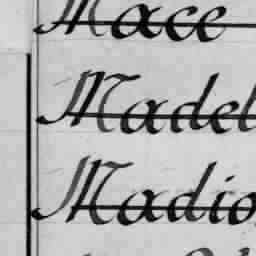 Mace
Madel
Madio